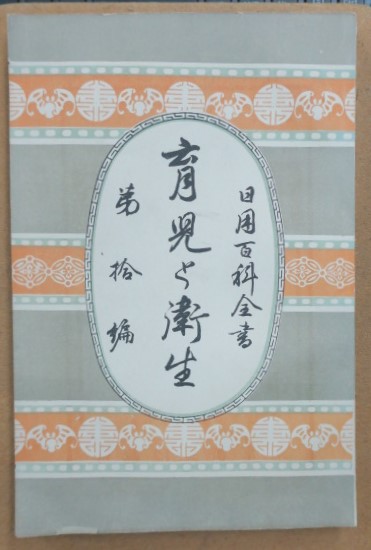 日用百科全書
育児と衛生
第拾編